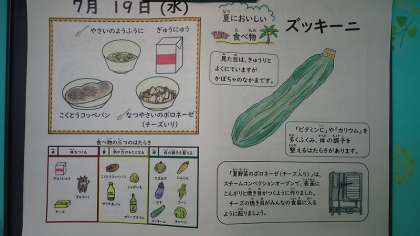 7月 19日(水)
やさいのようふうに
ぎゅうにゅう
こくとうコッペパン
なつやさいのボロネーゼ
(チーズいり)
食べ物の三つのはたらき
夏においしい
食べ物
ズッキーニ
見た目は、きゅうりと
よくにていますが
かぼちゃのなかまです。
「ビタミンC」や「カリウム」を
多くふくみ、体の調子を
整えるはたらきがあります。
「夏野菜のボロネーゼ(チーズ入り)」は、
スチームコンベクションオーブンで、表面に
こんがりと焼き目がつくように作りました。
チーズの焼き目がみんなの食器に入る
ように配りましょう。